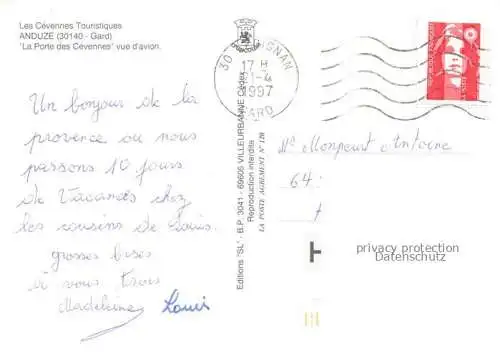 Les Cévennes Touristiques
ANDUZE (30140 - Gard)
"La Porte des Cévennes" vue d'avion.
Un bonjour de la
provence ou nous
passons 10 jours
de Vacances chez
les cousins de Louis.
grosses bises
à vous trois
Madeleine Louis
Editions "SL" - B.P. 3041 - 69605 VILLEURBANNE Cédex
Reproduction interdite
LA POSTE AGREMENT N° 120
30 GNAN
17 H
1-4
1997
GARD
Antoine
64
privacy protection
Datenschutz